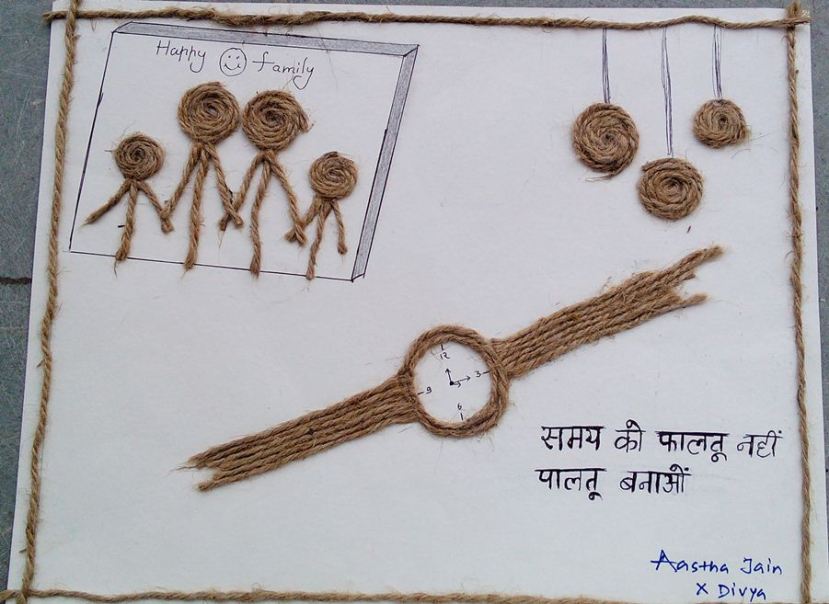 Happy family
12
9 3
6
समय को फालतू नहीं
पालतू बनाओं
Aastha Jain
X Divya